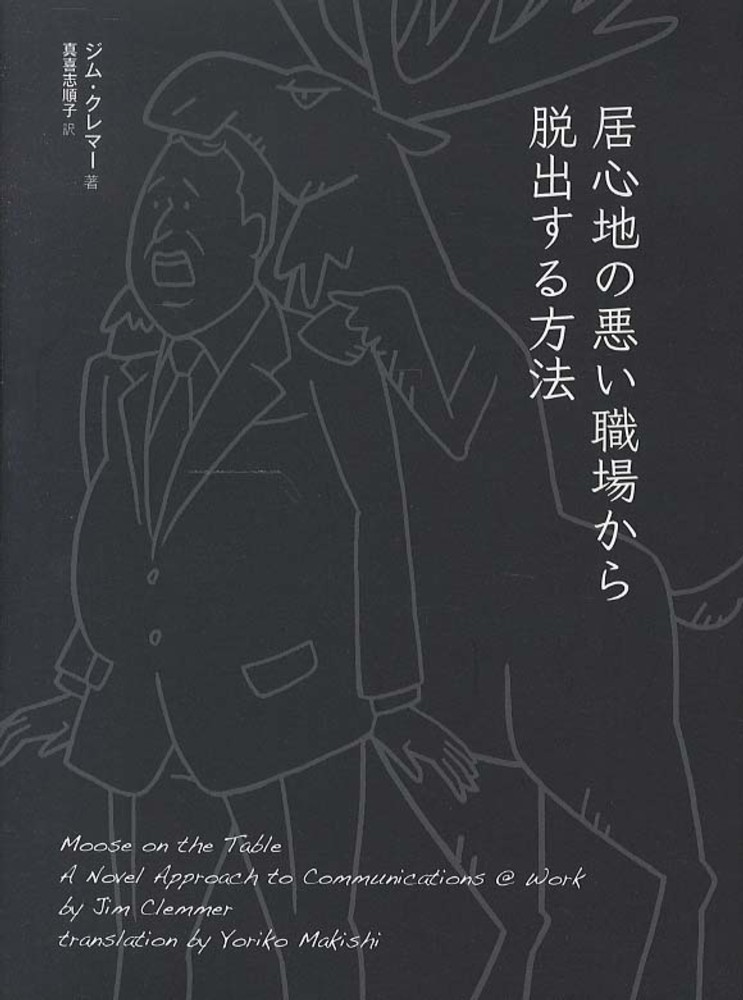 居心地の悪い職場から
脱出する方法
ジム・クレマー 著
真喜志順子 訳
Moose on the Table
A Novel Approach to Communications @ Work
by Jim Clemmer
translation by Yoriko Makishi